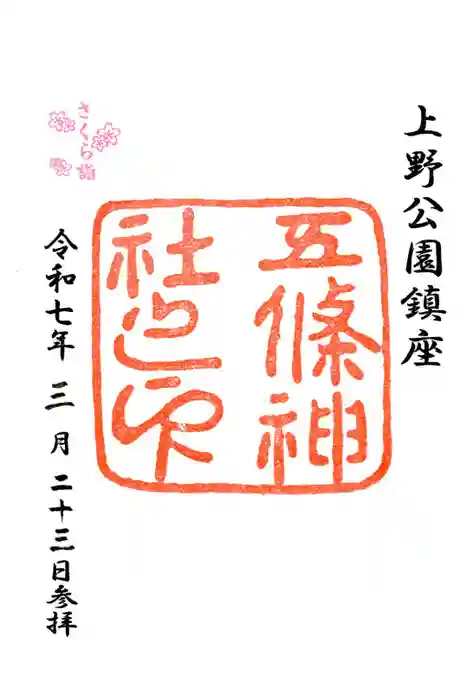 上野公園鎮座
五條神
社之印
さくら詣
令和七年三月二十三日参拝